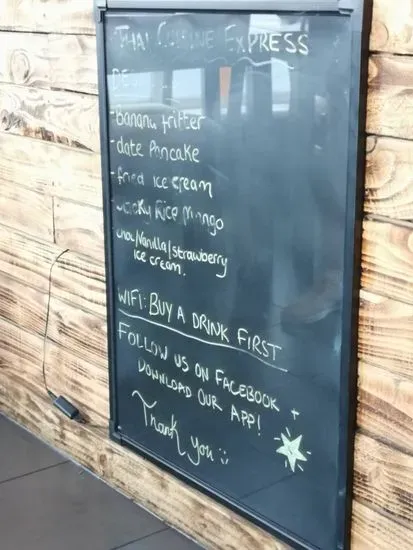 THAI CUISINE EXPRESS
- banana fritter
- date Pancake
- fried ice cream
- sticky Rice Mango
choc/Vanilla/strawberry
ice cream.
WIFI: BUY A DRINK FIRST
FOLLOW US ON FACEBOOK +
DOWNLOAD OUR APP!
Thank you :)